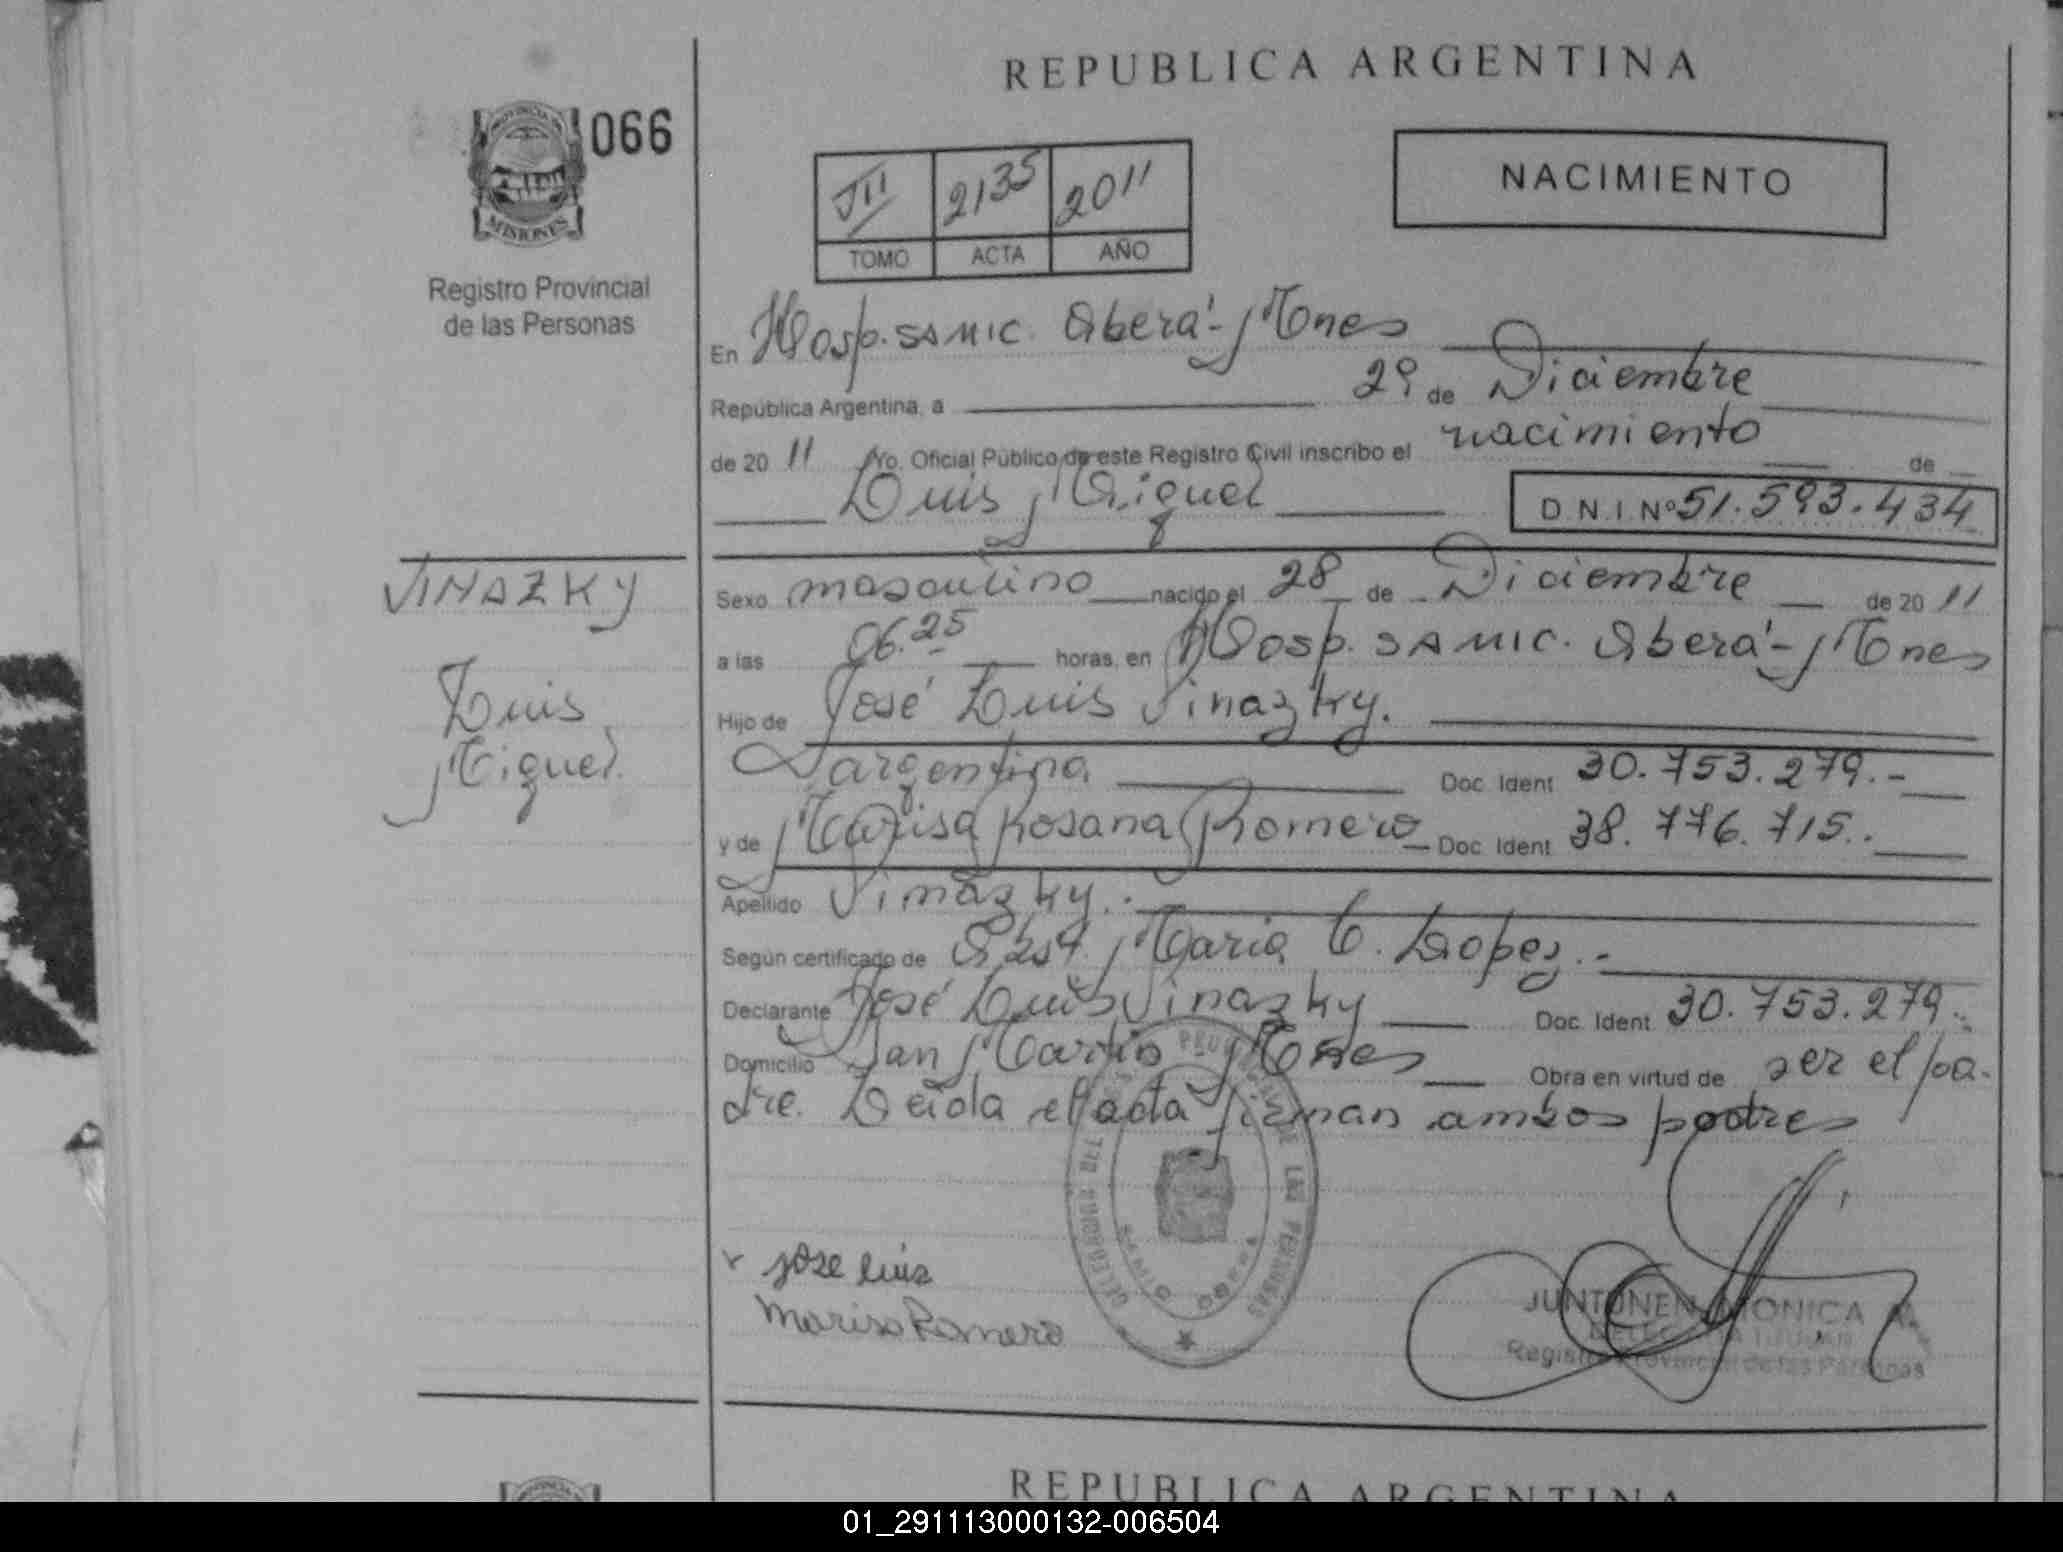 REPUBLICA ARGENTINA
066
PROVINCIA DE
MISIONES
Registro Provincial
de las Personas
III 2135 2011
TOMO ACTA AÑO
NACIMIENTO
En Hosp. SAMIC. Oberá - Mnes
República Argentina, a 29 de Diciembre
de 20 11 Yo, Oficial Público de este Registro Civil inscribo el nacimiento de
Luis Miguel
D.N.I. Nº 51.593.434
VINAZKY
Luis
Miguel.
Sexo masculino nacido el 28 de Diciembre de 20 11
a las 06.25 horas, en Hosp. SAMIC. Oberá - Mnes
Hijo de José Luis Vinazky.
argentina Doc. Ident 30.753.279.-
y de Marisa Rosana Romero Doc. Ident 38.776.715..
Apellido Vinazky.-
Según certificado de Obst. Maria C. Lopez.-
Declarante José Luis Vinazky Doc. Ident. 30.753.279.-
Domicilio San Martin Mnes Obra en virtud de ser el pa-
dre. Leida el acta firman ambos padres
jose luis
Marisa Romero
DE LAS PERSONAS
JUNTUNEN MONICA A.
Registro Provincial de las Personas
REPUBLICA ARGENTINA
01_291113000132-006504